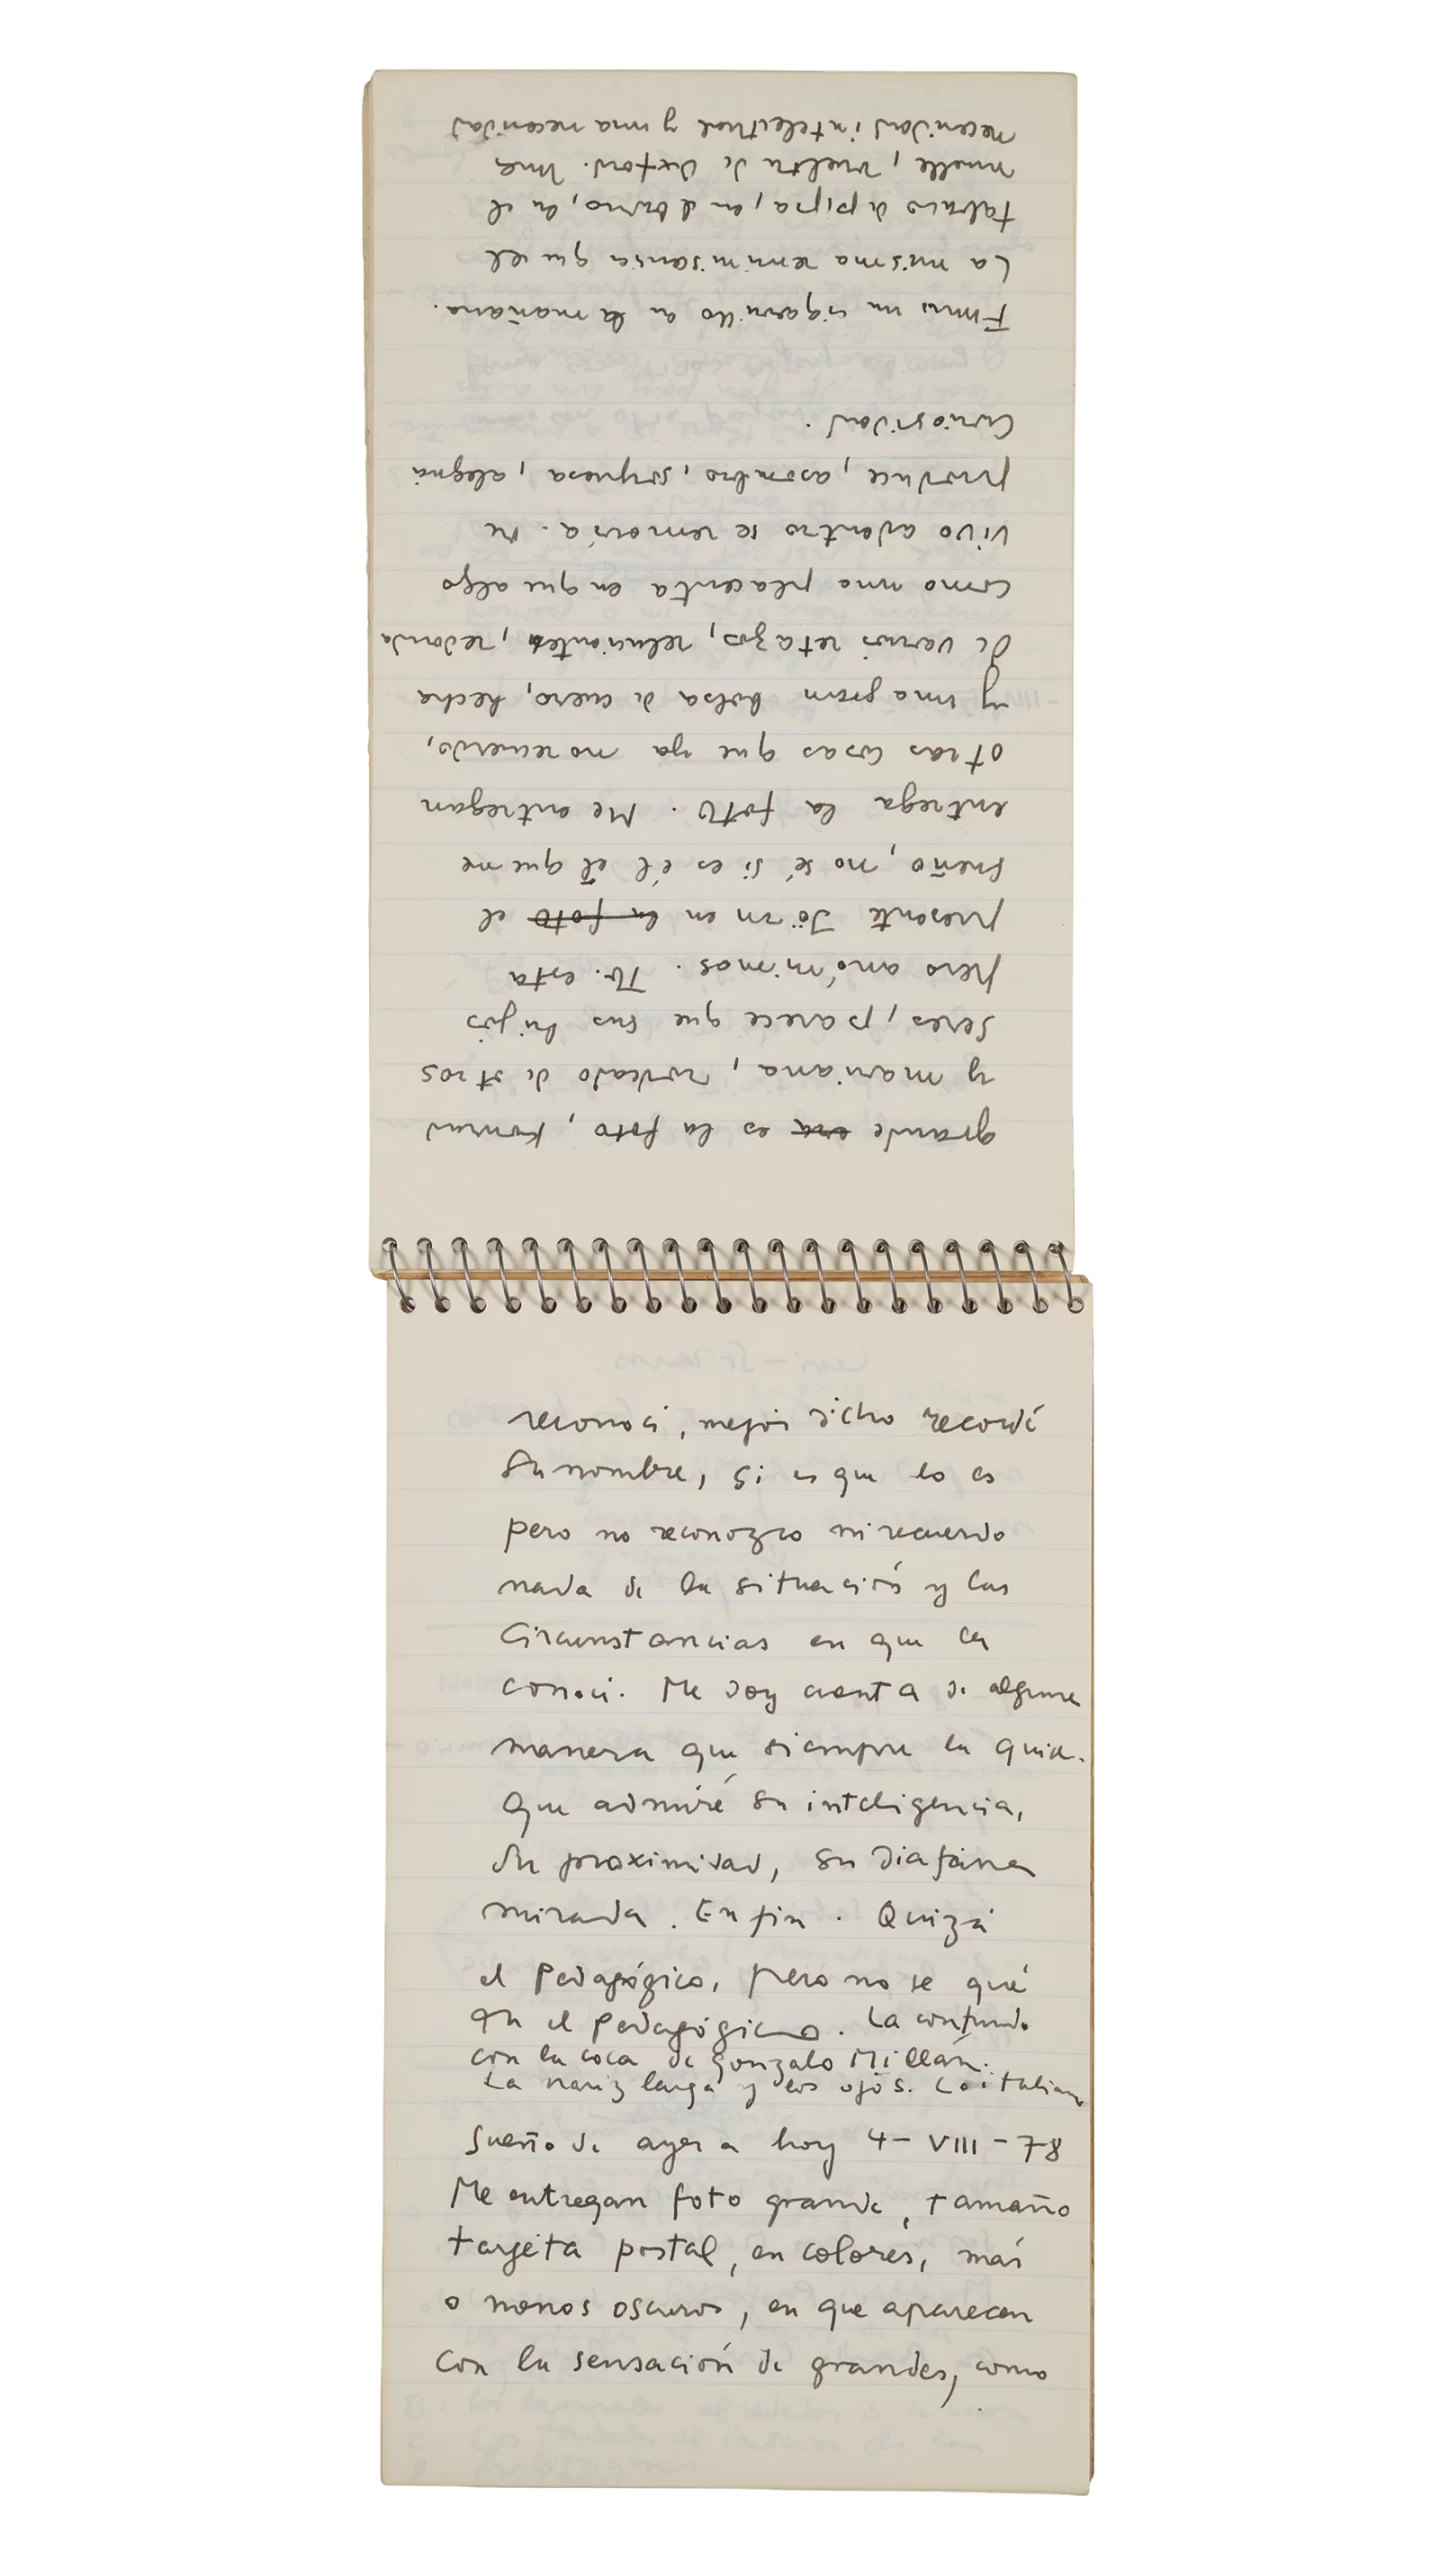 reconocí, mejor dicho recordé
su nombre, si es que lo es
pero no reconozco ni recuerdo
nada de la situación y las
circunstancias en que la
conocí. Me doy cuenta de alguna
manera que siempre la quise.
Que admiré su inteligencia,
su proximidad, su diáfana
mirada. En fin. Quizá
el Pedagógico, pero no se qué
en el pedagógico. La confundo
con la coca de Gonzalo Millán.
La nariz larga y los ojos. La italiana
Sueño de ayer a hoy 4-VIII-78
Me entregan foto grande, tamaño
tarjeta postal, en colores, más
o menos oscuros, en que aparecen
con la sensación de grandes, como
grande era es la foto, Konrad
y Mariana, rodeado de otros
seres, parece que sus hijos
pero anónimos. Tb. esta
presente Jörn en la foto el
sueño, no sé si es él el que me
entrega la foto. Me entregan
otras cosas que ya no recuerdo,
y una gran bolsa de cuero, hecha
de varios retazos, relucientes, redonda
como una placenta en que algo
vivo adentro se removía. Me
produce, asombro, sorpresa, alegría
curiosidad.
Fumo un cigarrillo en la mañana.
La misma reminiscencia que el
tabaco de pipa, en el baño, en el
muelle, vuelta de Oxford. Una
necesidad intelectual y una necesidad